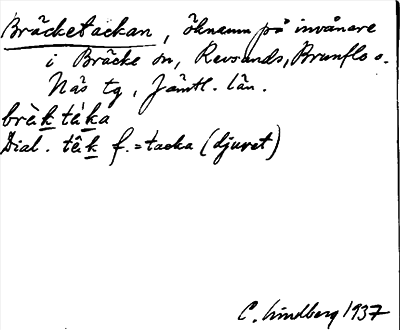 Bräcketackan, öknamn på invånare
i Bräcke sn, Revsunds, Brunflo o.
Näs tg, Jämtl. län.
brèk tèka
Dial. têk f. = tacka (djuret)
C. Lindberg 1937